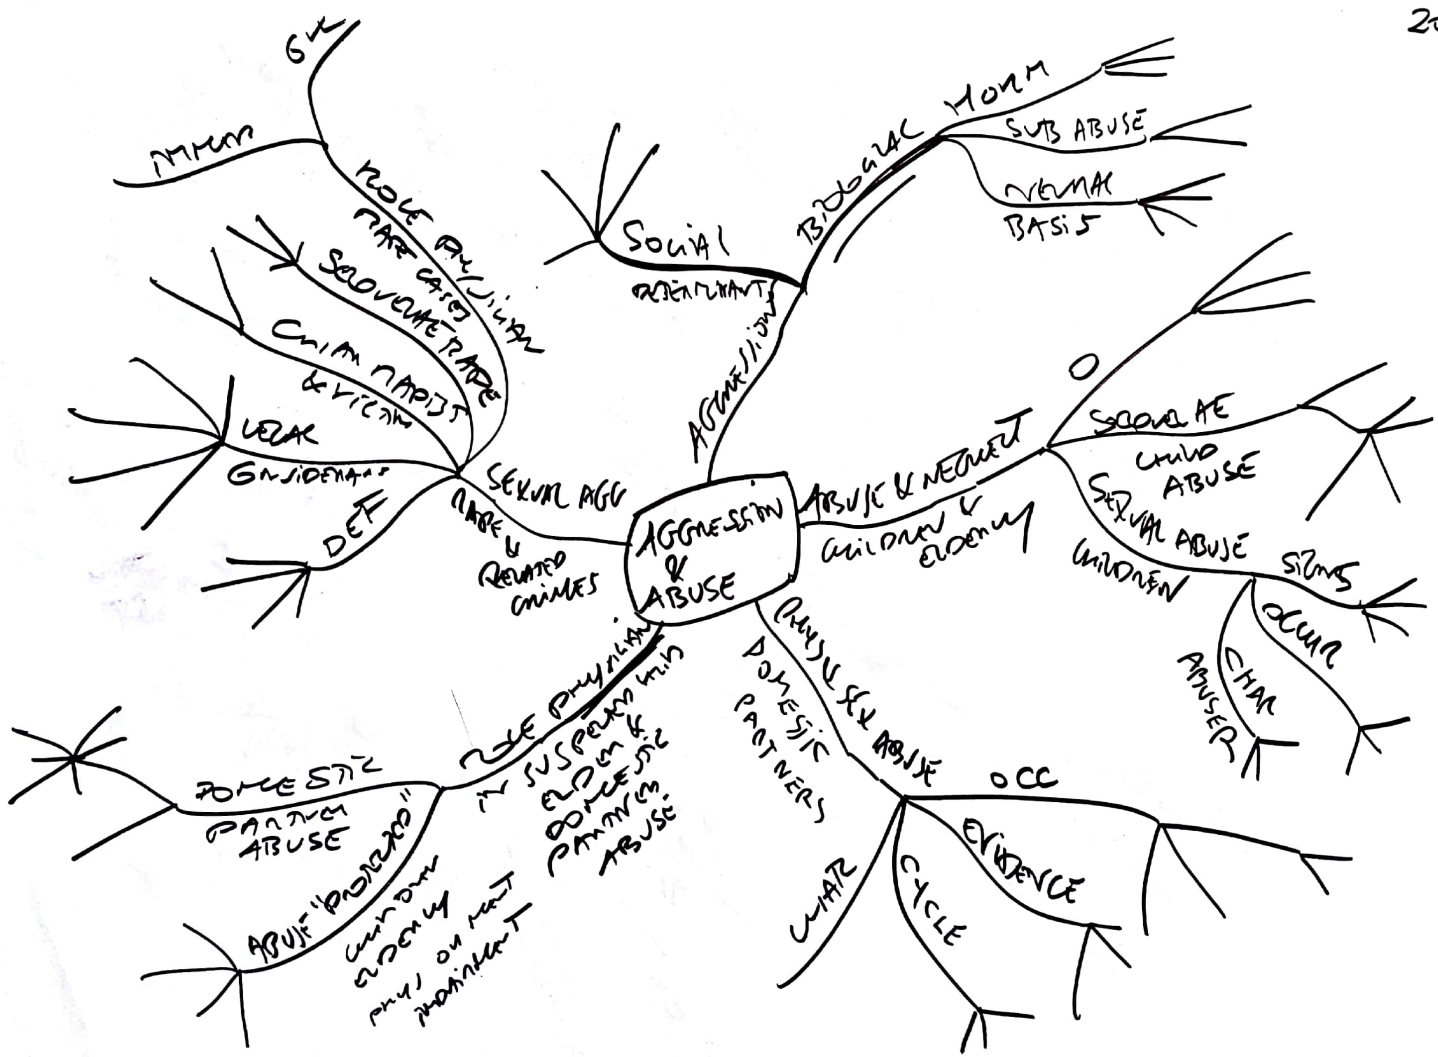 AGGRESSION
&
ABUSE
AGGRESSION
SOCIAL
DETERMINANTS
BIOLOGICAL
HORM
SUB ABUSE
NEURAL
BASIS
ABUSE & NEGLECT
CHILDREN &
ELDERLY
O
SEQUELAE
CHILD
ABUSE
SEXUAL ABUSE
CHILDREN
SIGNS
OCCUR
CHAR
ABUSER
PHYS & SEX ABUSE
DOMESTIC
PARTNERS
OCC
EVIDENCE
CYCLE
CHAR
ROLE PHYSICIAN
IN SUSPECTED CHILD
ELDER &
DOMESTIC
PARTNER
ABUSE
DOMESTIC
PARTNER
ABUSE
ABUSE "PROTECTED"
CHILDREN
ELDERLY
PHYS OR MENT
IMPAIRMENT
SEXUAL AGG
RAPE &
RELATED
CRIMES
DEF
LEGAL
CONSIDERANS
CHAR RAPIST
& VICTIM
SEQUELAE RAPE
ROLE PHYSICIAN
RAPE CASES
IMMED